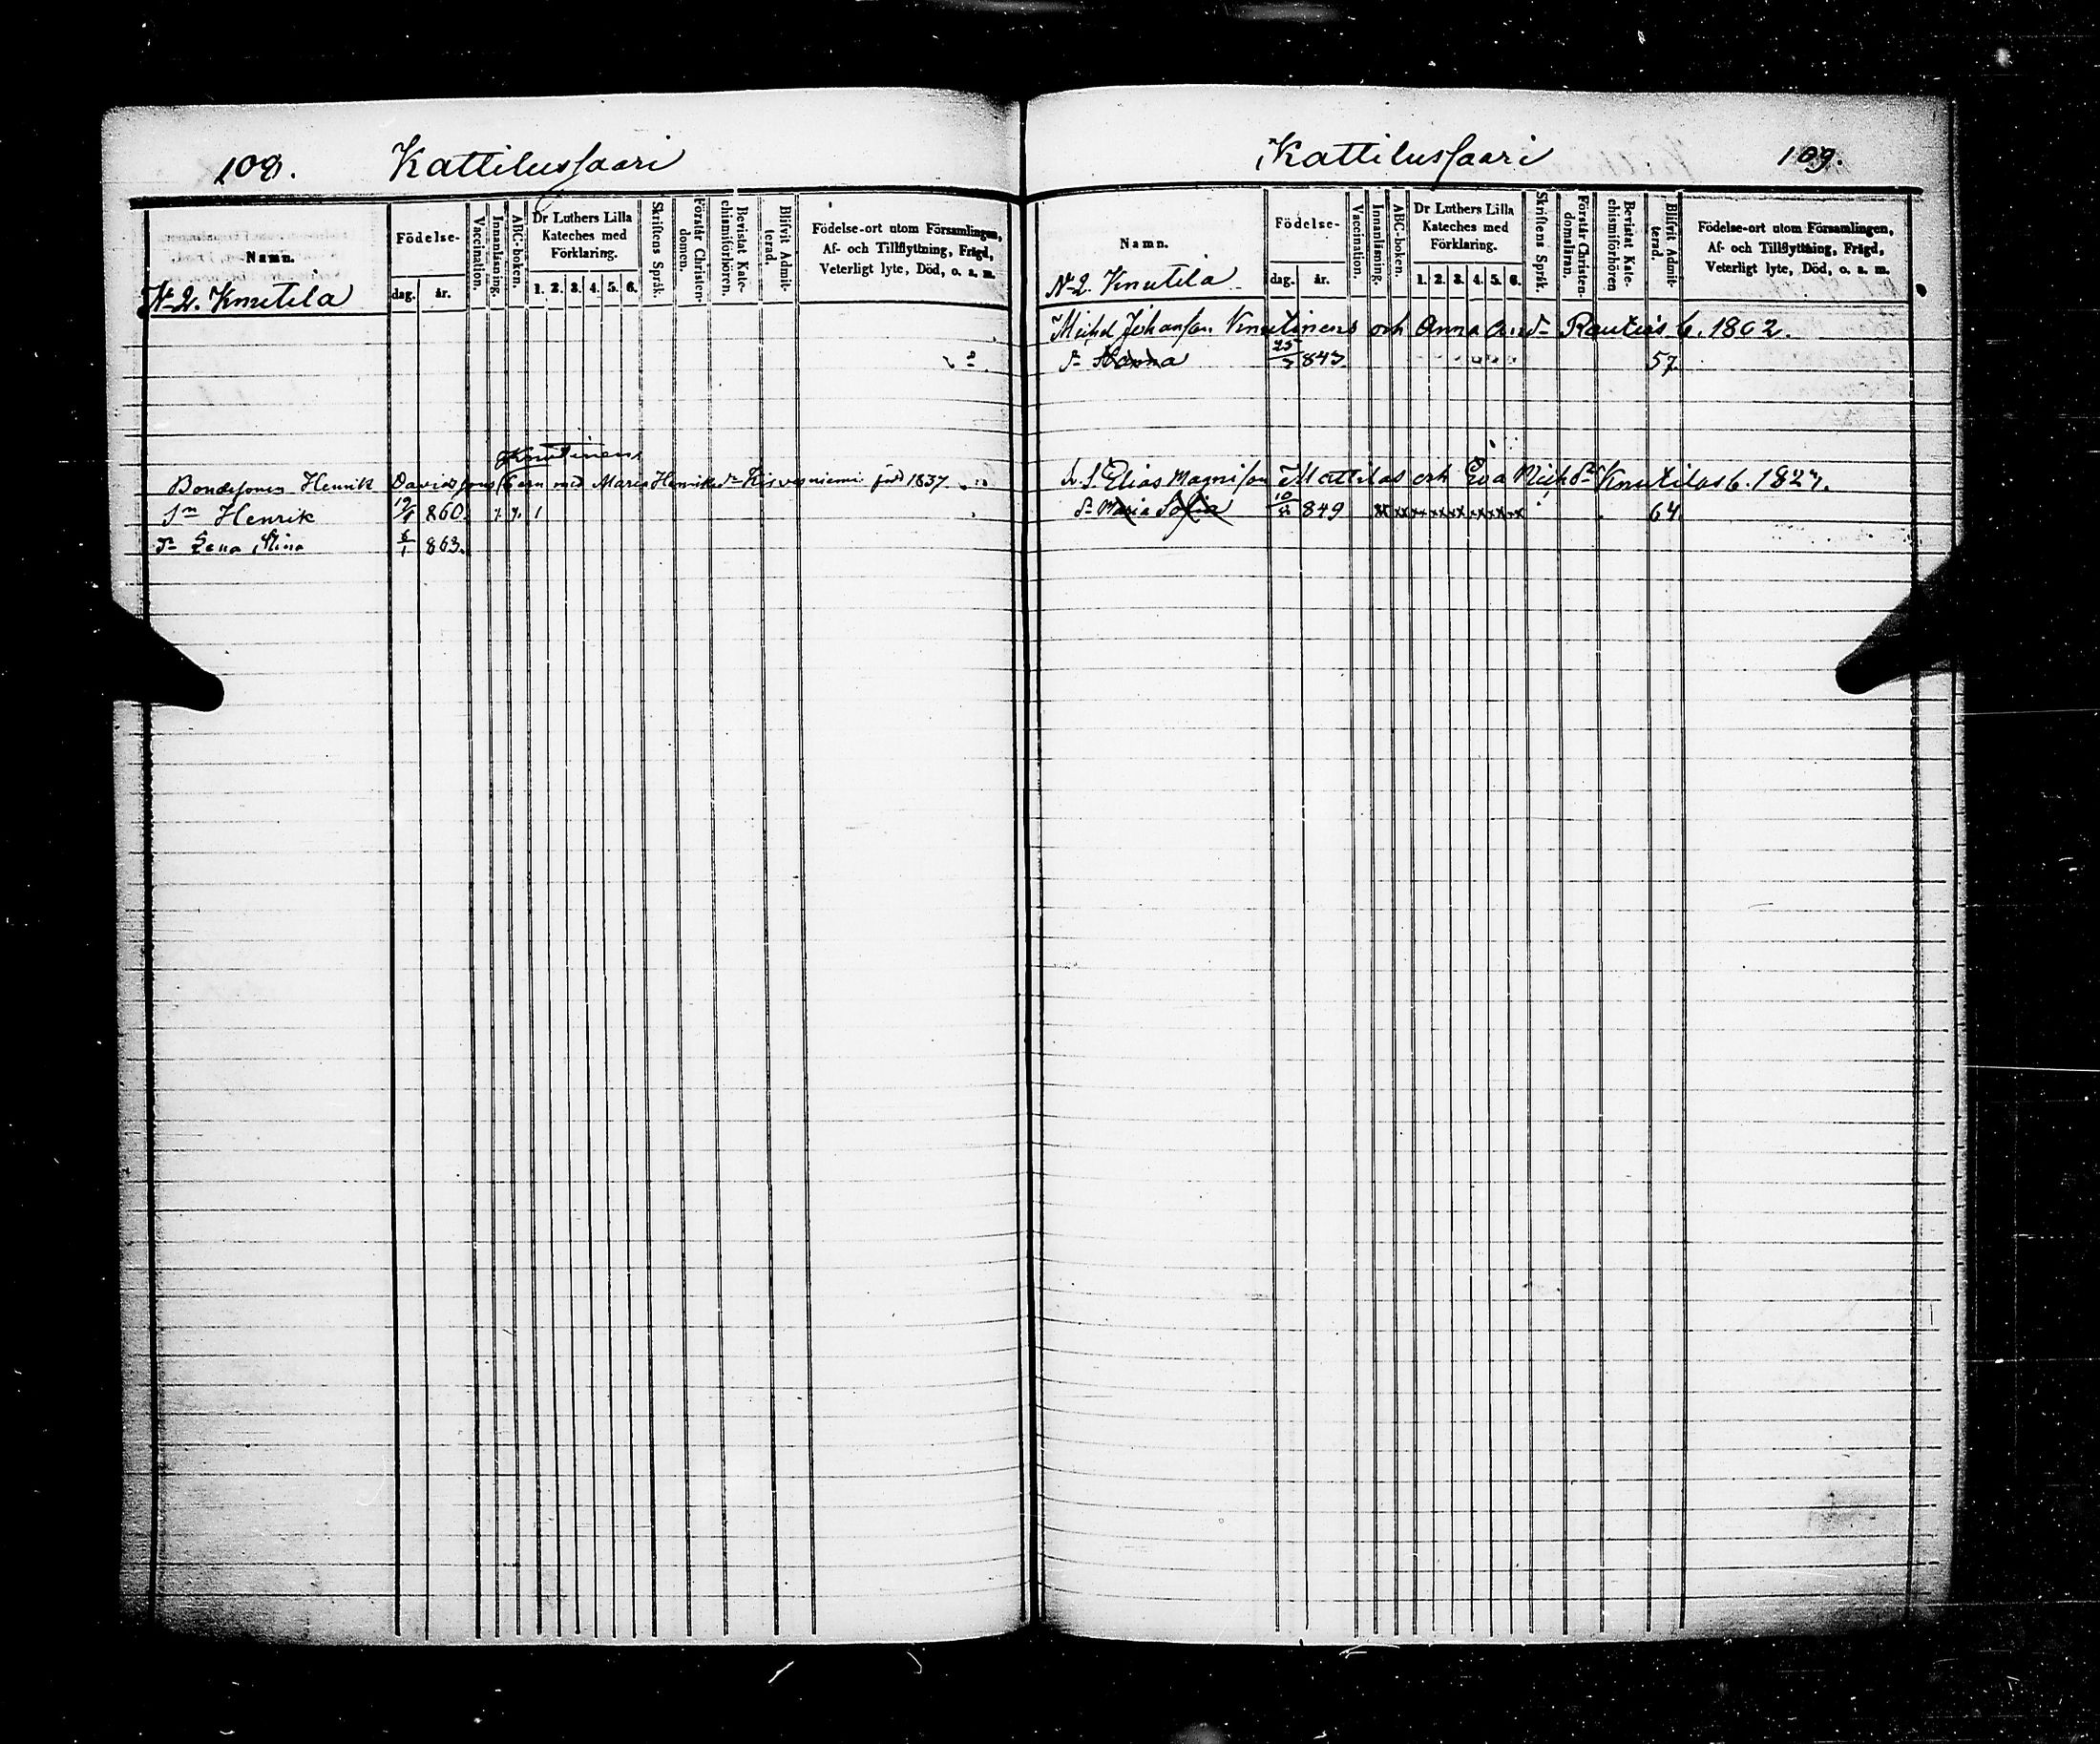 108. Kattilussaari
Namn.
Födelse-
dag. år.
Vaccination.
Innanläsning.
ABC-boken.
Dr Luthers Lilla
Kateches med
Förklaring.
1. 2. 3. 4. 5. 6.
Skriftens Språk.
Förstår Christen-
domen.
Bevistat Kate-
chismiförhören.
Blifvit Admit-
terad.
Födelse-ort utom Församlingen,
Af- och Tillflyttning, Frägd,
Veterligt lyte, Död, o. s. m.
N-2. Knutila
Knutinens
Bondesonen Henrik Davidssons barn med Maria Henriksdr född 1837
Sn Henrik 19/1 860. 1
Dr Lena Stina 6/1 863.
Kattilussaari 109.
Namn.
Födelse-
dag. år.
Vaccination.
Innanläsning.
ABC-boken.
Dr Luthers Lilla
Kateches med
Förklaring.
1. 2. 3. 4. 5. 6.
Skriftens Språk.
Förstår Christen-
domsläran.
Bevistat Kate-
chismiförhören
Blifvit Admit-
terad.
Födelse-ort utom Församlingen,
Af- och Tillflyttning, Frägd,
Veterligt lyte, Död, o. s. m.
N-2. Knutila
Michel Johansson Knutinens och Anna And- Rautios b. 1802.
Dr Hanna 843 57
Elias Magnisson Mattilas och Eva Michdr Knutilas b. 1827.
Dr Maria Sofia 849 64